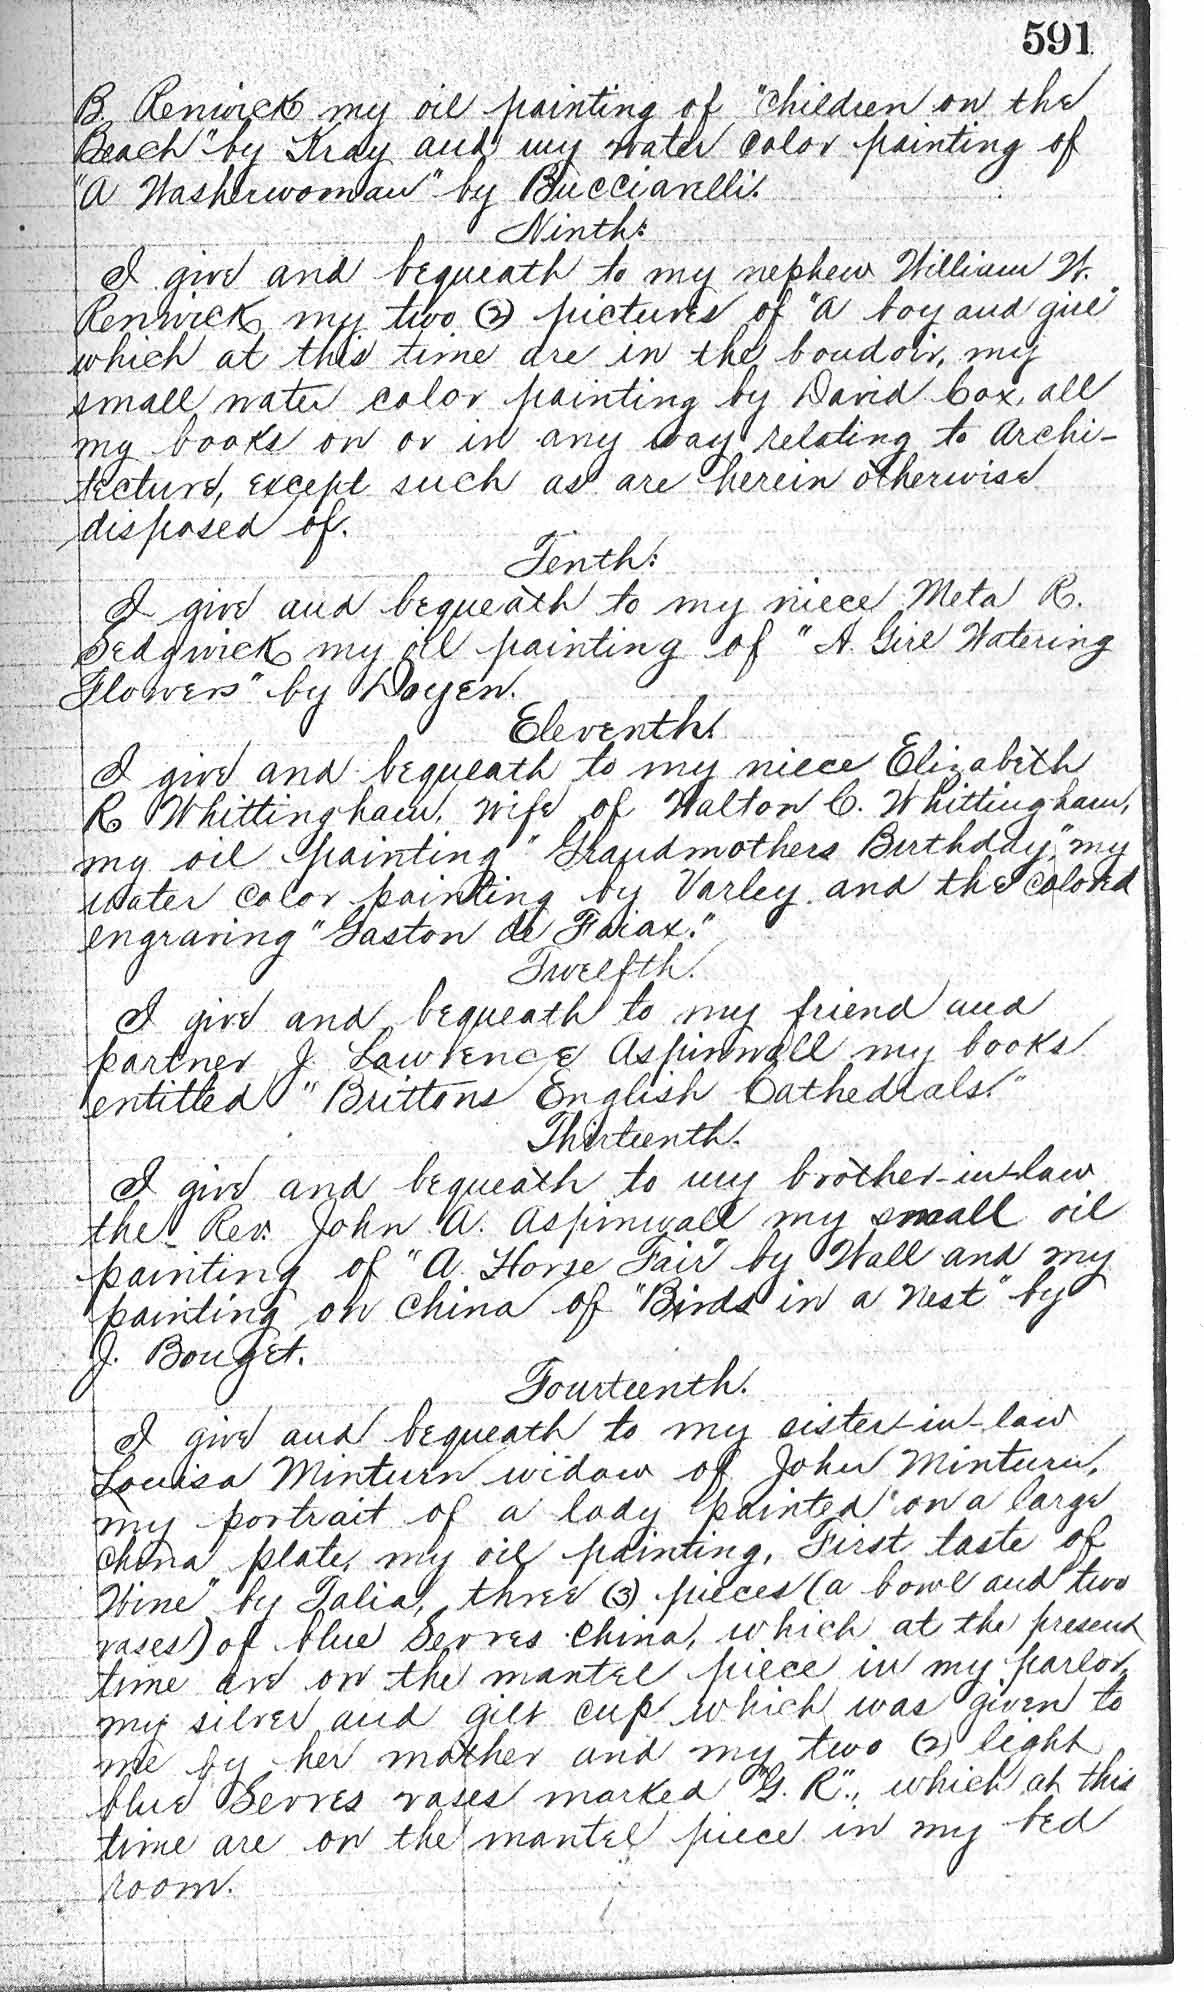 591
B. Renwick my oil painting of "Children on the
Beach" by Kray and my water color painting of
"A Washerwoman" by Bucciarelli.
Ninth:
I give and bequeath to my nephew William W.
Renwick my two (2) pictures of "A boy and girl"
which at this time are in the boudoir, my
small water color painting by David Cox, all
my books on or in any way relating to Archi-
tecture, except such as are herein otherwise
disposed of.
Tenth:
I give and bequeath to my niece Meta R.
Sedgwick my oil painting of "A Girl Watering
Flowers" by Doyen.
Eleventh:
I give and bequeath to my niece Elizabeth
R Whittingham, wife of Walton C. Whittingham,
my oil painting "Grandmothers Birthday," my
water color painting by Varley and the colored
engraving "Gaston de Foiax."
Twelfth.
I give and bequeath to my friend and
partner J. Lawrence Aspinwall my books
entitled "Brittons English Cathedrals."
Thirteenth.
I give and bequeath to my brother-in-law
the Rev. John A. Aspinwall my small oil
painting of "A Horse Fair" by Wall and my
painting on china of "Birds in a Nest" by
J. Bouget.
Fourteenth.
I give and bequeath to my sister-in-law
Louisa Minturn widow of John Minturn,
my portrait of a lady painted on a large
china plate, my oil painting, First taste of
Wine" by Talia, three (3) pieces (a bowl and two
vases) of blue Serves china, which at the present
time are on the mantel piece in my parlor,
my silver and gilt cup which was given to
me by her mother and my two (2) light
blue Serves vases marked "G. R.", which at this
time are on the mantel piece in my bed
room.